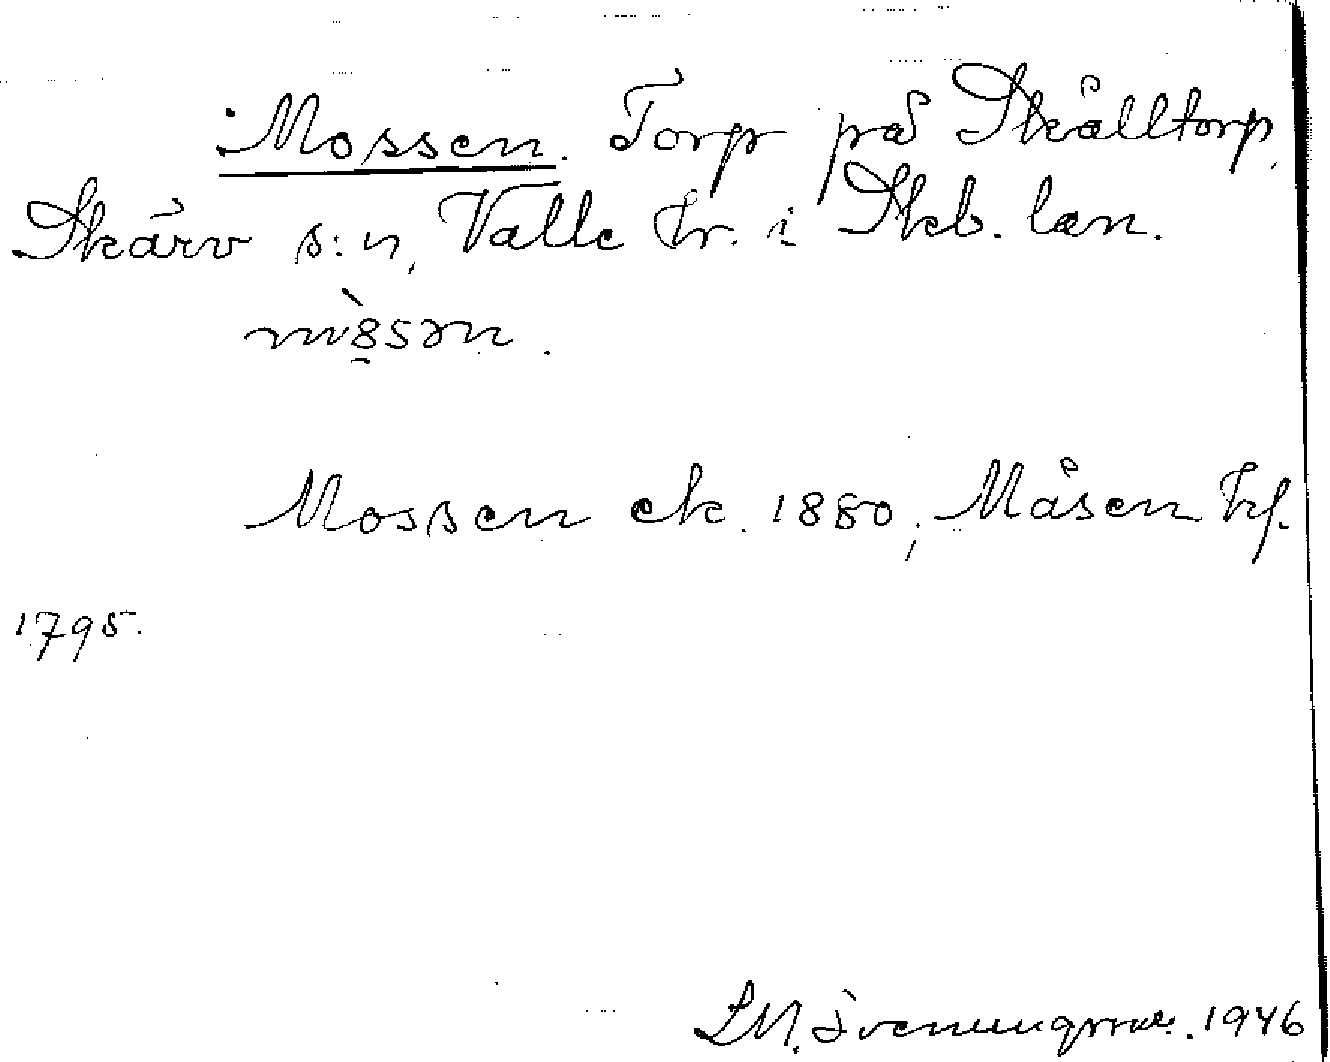 Mossen. Torp på Skålltorp,
Skärv s:n, Valle hr. i Skb. län.
Mossen ek. 1880; Måsen hf.
1795.
1946